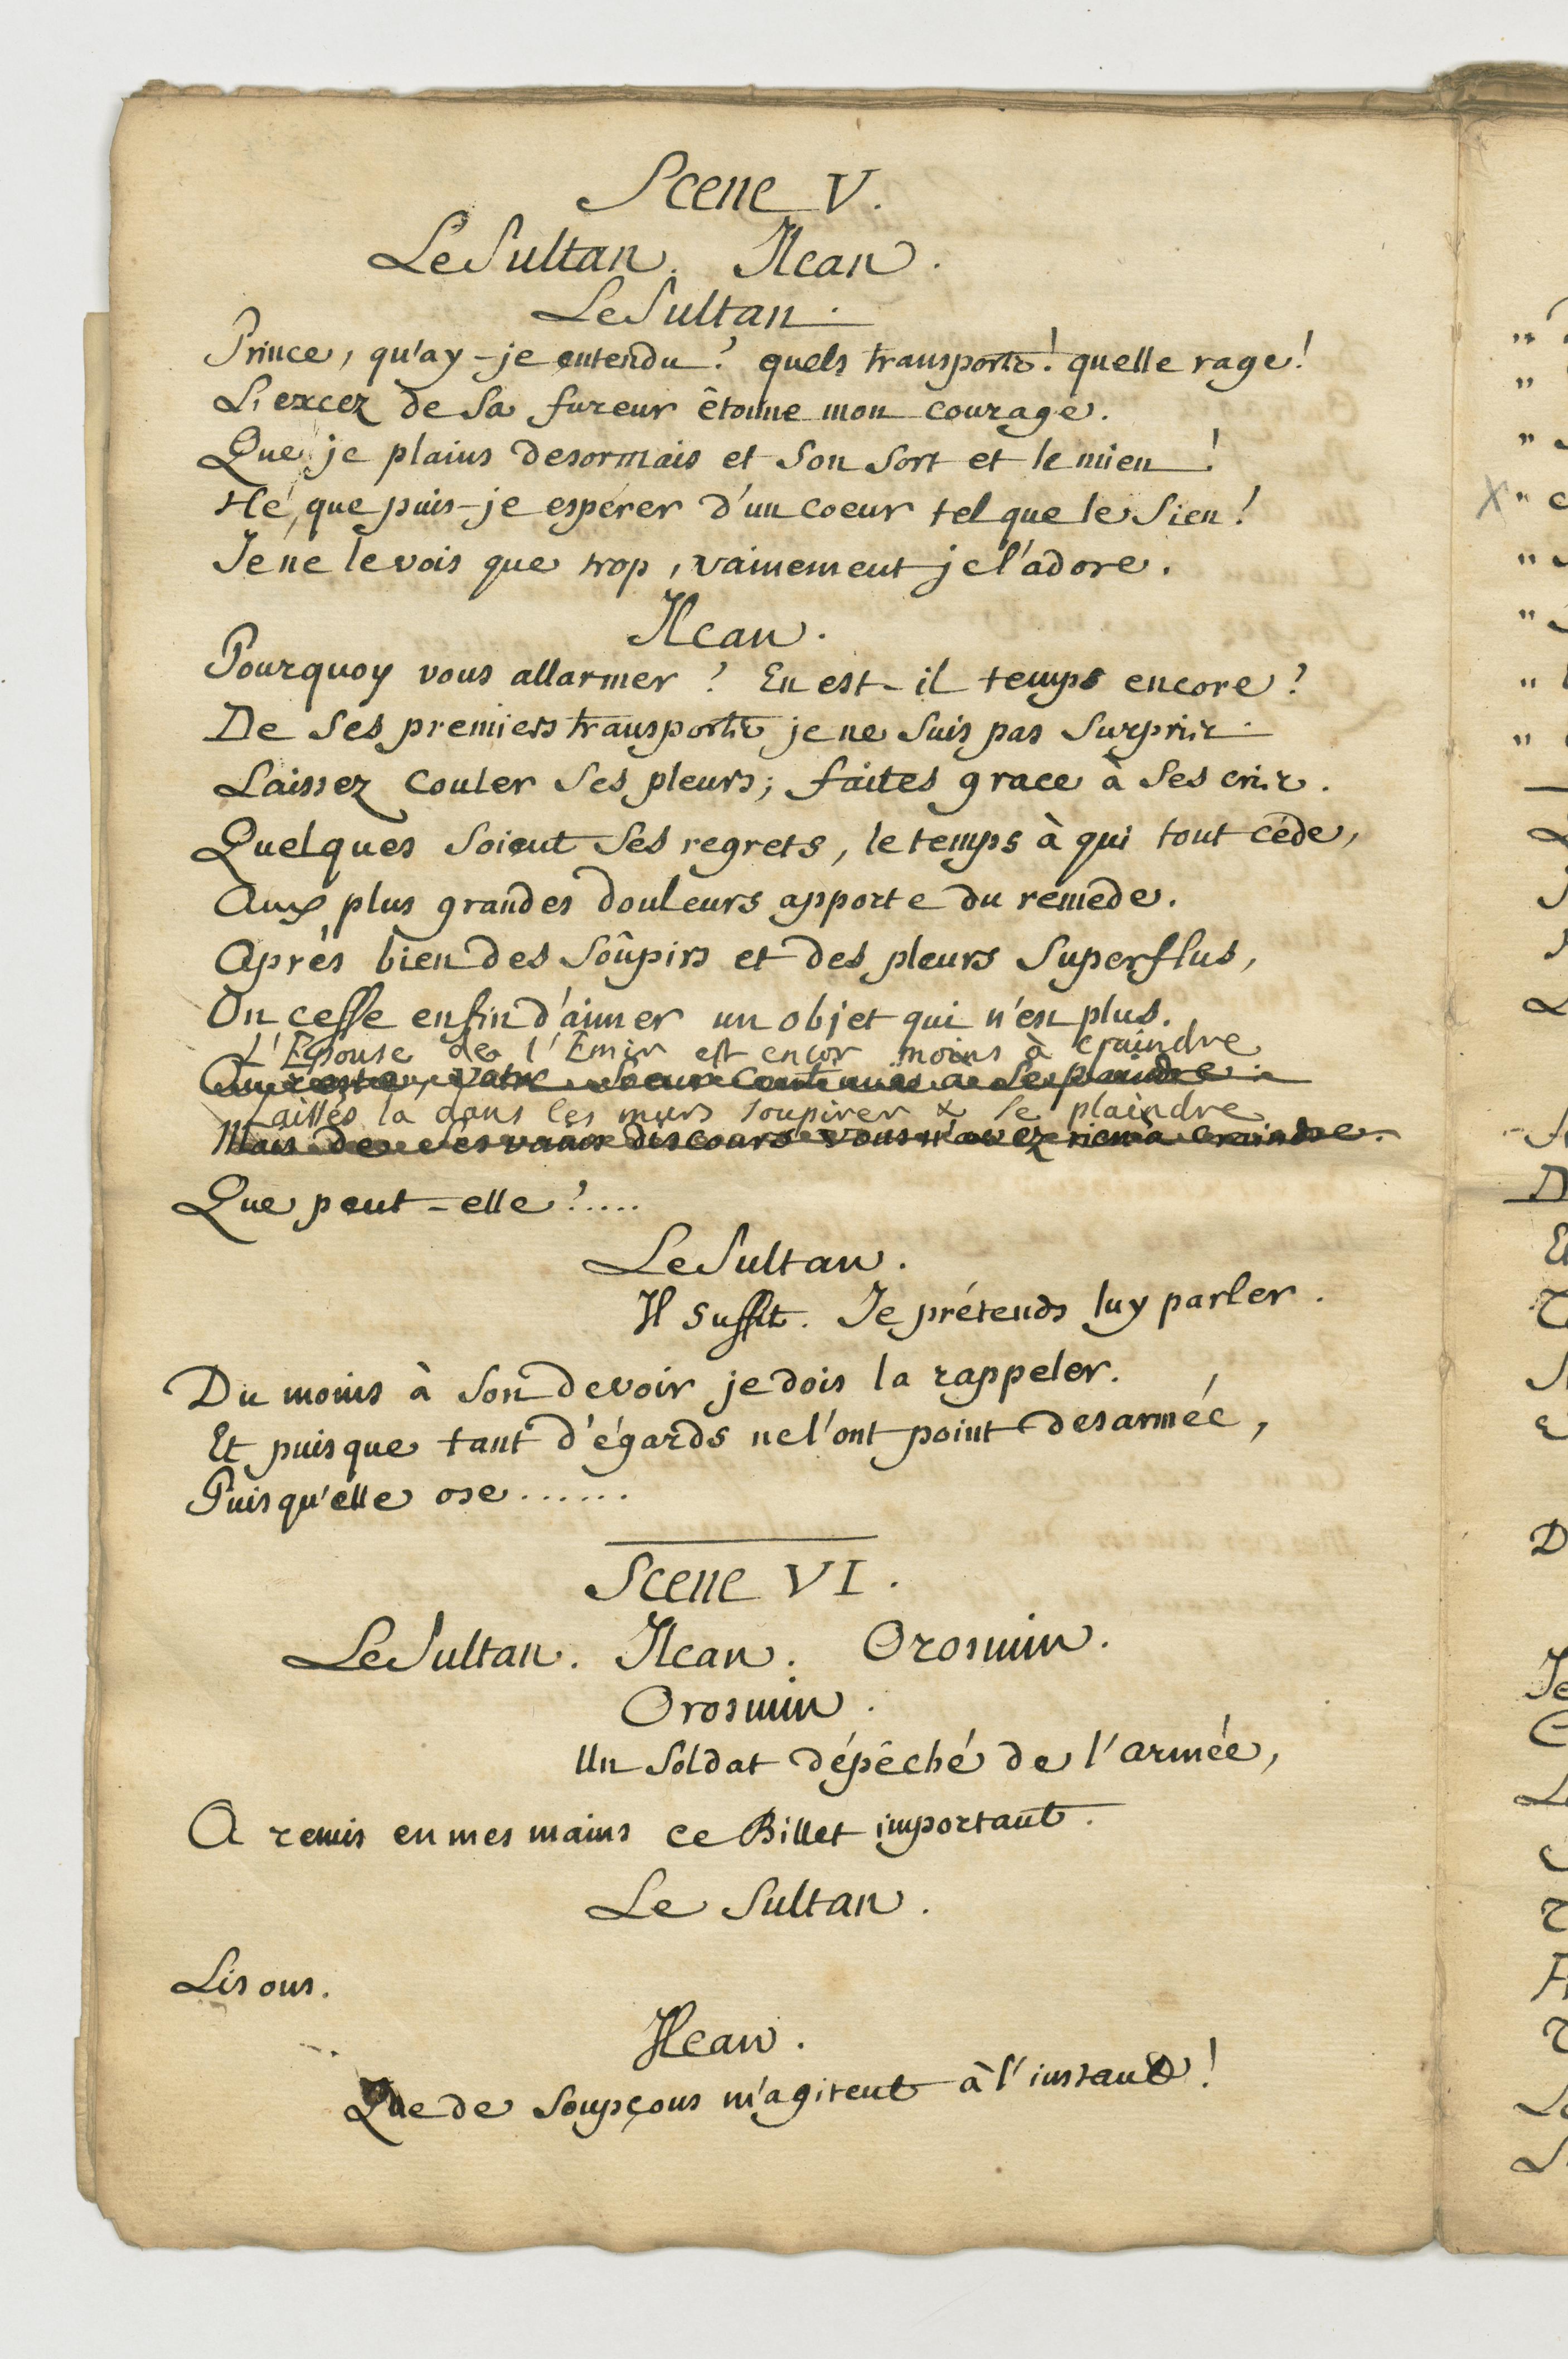 Scene V.
Le Sultan. Ilcan.
Le Sultan.
Prince, qu'ay-je entendu? quels transports! quelle rage!
L'excez de sa fureur étonne mon courage.
Que je plains desormais et son sort et le mien!
Hé, que puis-je espérer d'un coeur tel que le sien!
Je ne le vois que trop, vainement je l'adore.
Ilcan.
Pourquoy vous allarmer? En est-il temps encore?
De ses premiers transports je ne suis pas surpris.
Laissez couler ses pleurs; faites grace à ses cris.
Quelques soient ses regrets, le temps à qui tout céde,
Aux plus grandes douleurs apporte du reméde.
Après bien des soûpirs et des pleurs superflus,
On cesse enfin d'aimer un objet qui n'est plus.
L'Epouse de l'Emir est encor moins à craindre
Au reste, votre soeur continue à se plaindre
Laissés la dans les murs soupirer & se plaindre
Mais de ces vains discours vous n'avez rien à craindre.
Que peut-elle?.....
Le Sultan.
Il suffit. Je prétends luy parler.
Du moins à son devoir je dois la rappeler.
Et puisque tant d'égards ne l'ont point desarmée,
Puisqu'elle ose......
Scene VI.
Le Sultan. Ilcan. Orosmin.
Orosmin.
Un soldat dépêché de l'armée,
A remis en mes mains ce Billet important.
Le Sultan.
Lisons.
Ilcan.
Que de soupçons m'agitent à l'instant!